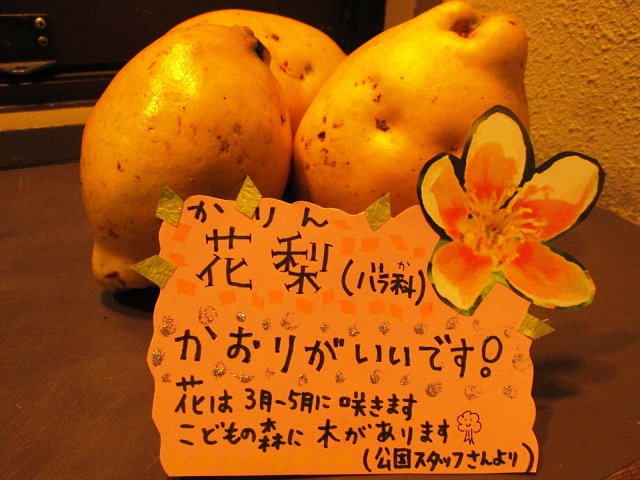 かりん
花梨(バラ科)
か
かおりがいいです。
花は3月~5月に咲きます
こどもの森に木があります
(公園スタッフさんより)